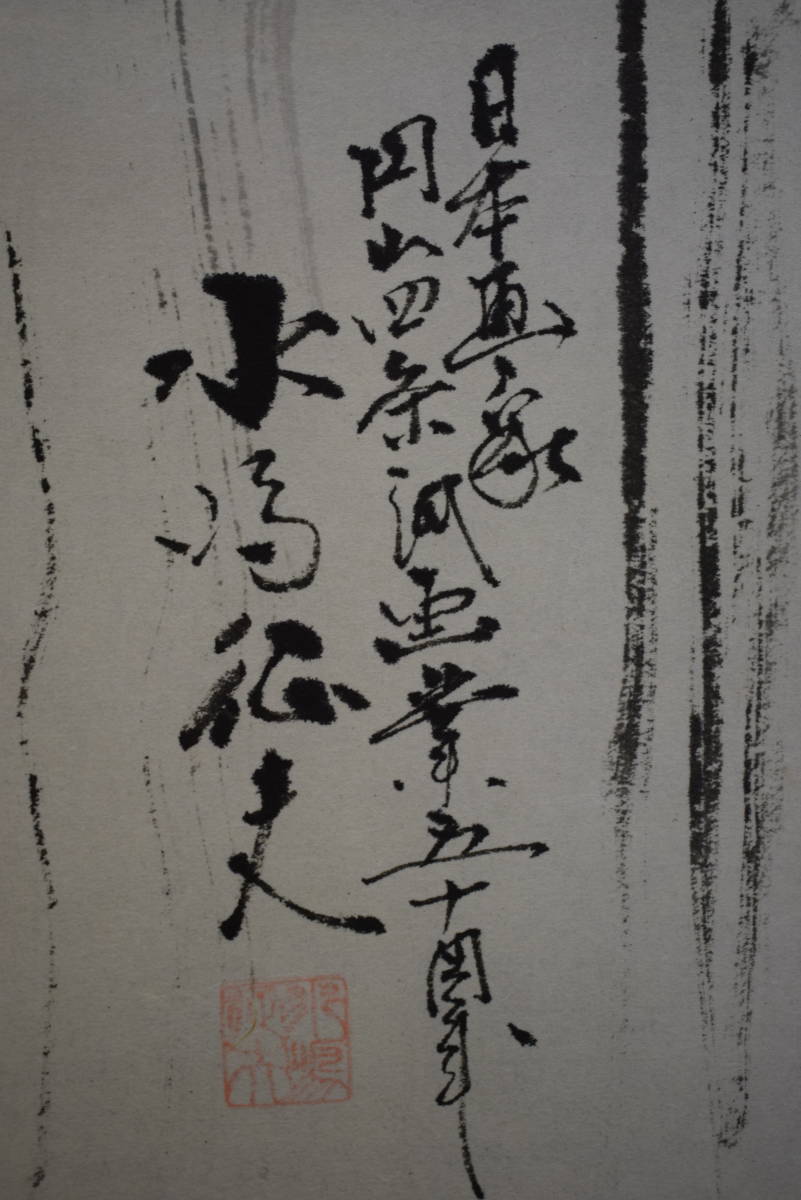 日本画家
円山四条派画業五十周年
水嶋征夫